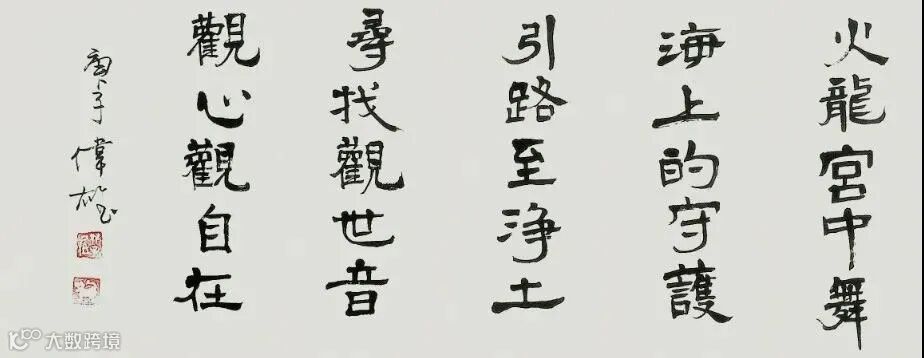 火龍宮中舞
海上的守護
引路至淨土
尋找觀世音
觀心觀自在
庚子 偉雄
大数跨境